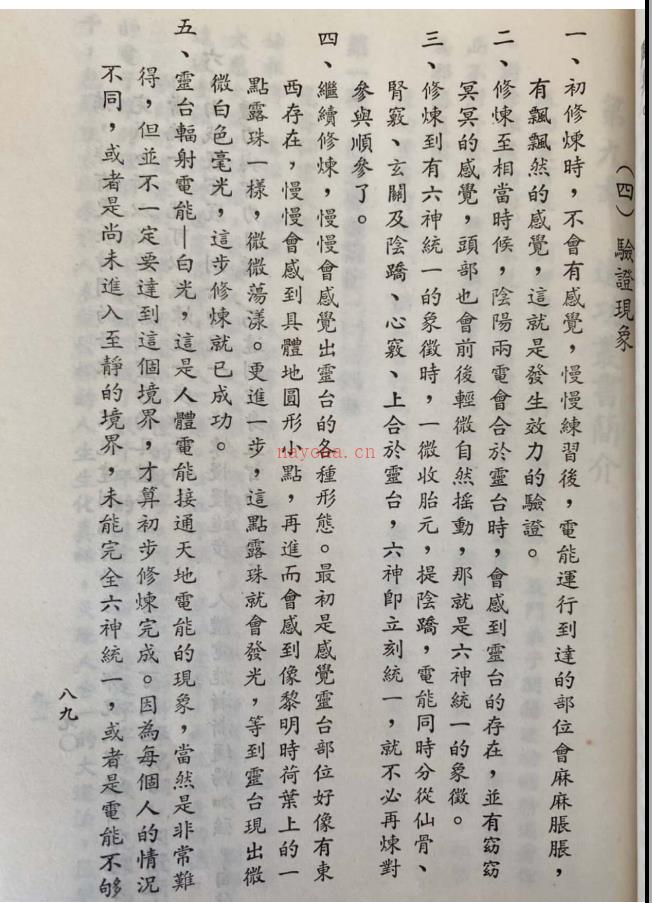 （四）驗證現象
一、初修煉時，不會有感覺，慢慢練習後，電能運行到達的部位會麻麻脹脹，
有飄飄然的感覺，這就是發生效力的驗證。
二、修煉至相當時候，陰陽兩電會合於靈台時，會感到靈台的存在，並有窈窈
冥冥的感覺，頭部也會前後輕微自然搖動，那就是六神統一的象徵。
三、修煉到有六神統一的象徵時，一微收胎元，提陰蹻，電能同時分從仙骨、
腎竅、玄關及陰蹻、心竅、上合於靈台，六神卽立刻統一，就不必再煉對
參與順參了。
四、繼續修煉，慢慢會感覺出靈台的各種形態。最初是感覺靈台部位好像有東
西存在，慢慢會感到具體地圓形小點，再進而會感到像黎明時荷葉上的一
點露珠一樣，微微蕩漾。更進一步，這點露珠就會發光，等到靈台現出微
微白色毫光，這步修煉就已成功。
五、靈台輻射電能｜白光，這是人體電能接通天地電能的現象，當然是非常難
得，但並不一定要達到這個境界，才算初步修煉完成。因為每個人的情況
不同，或者是尚未進入至靜的境界，未能完全六神統一，或者是電能不够
八九
nayona.cn